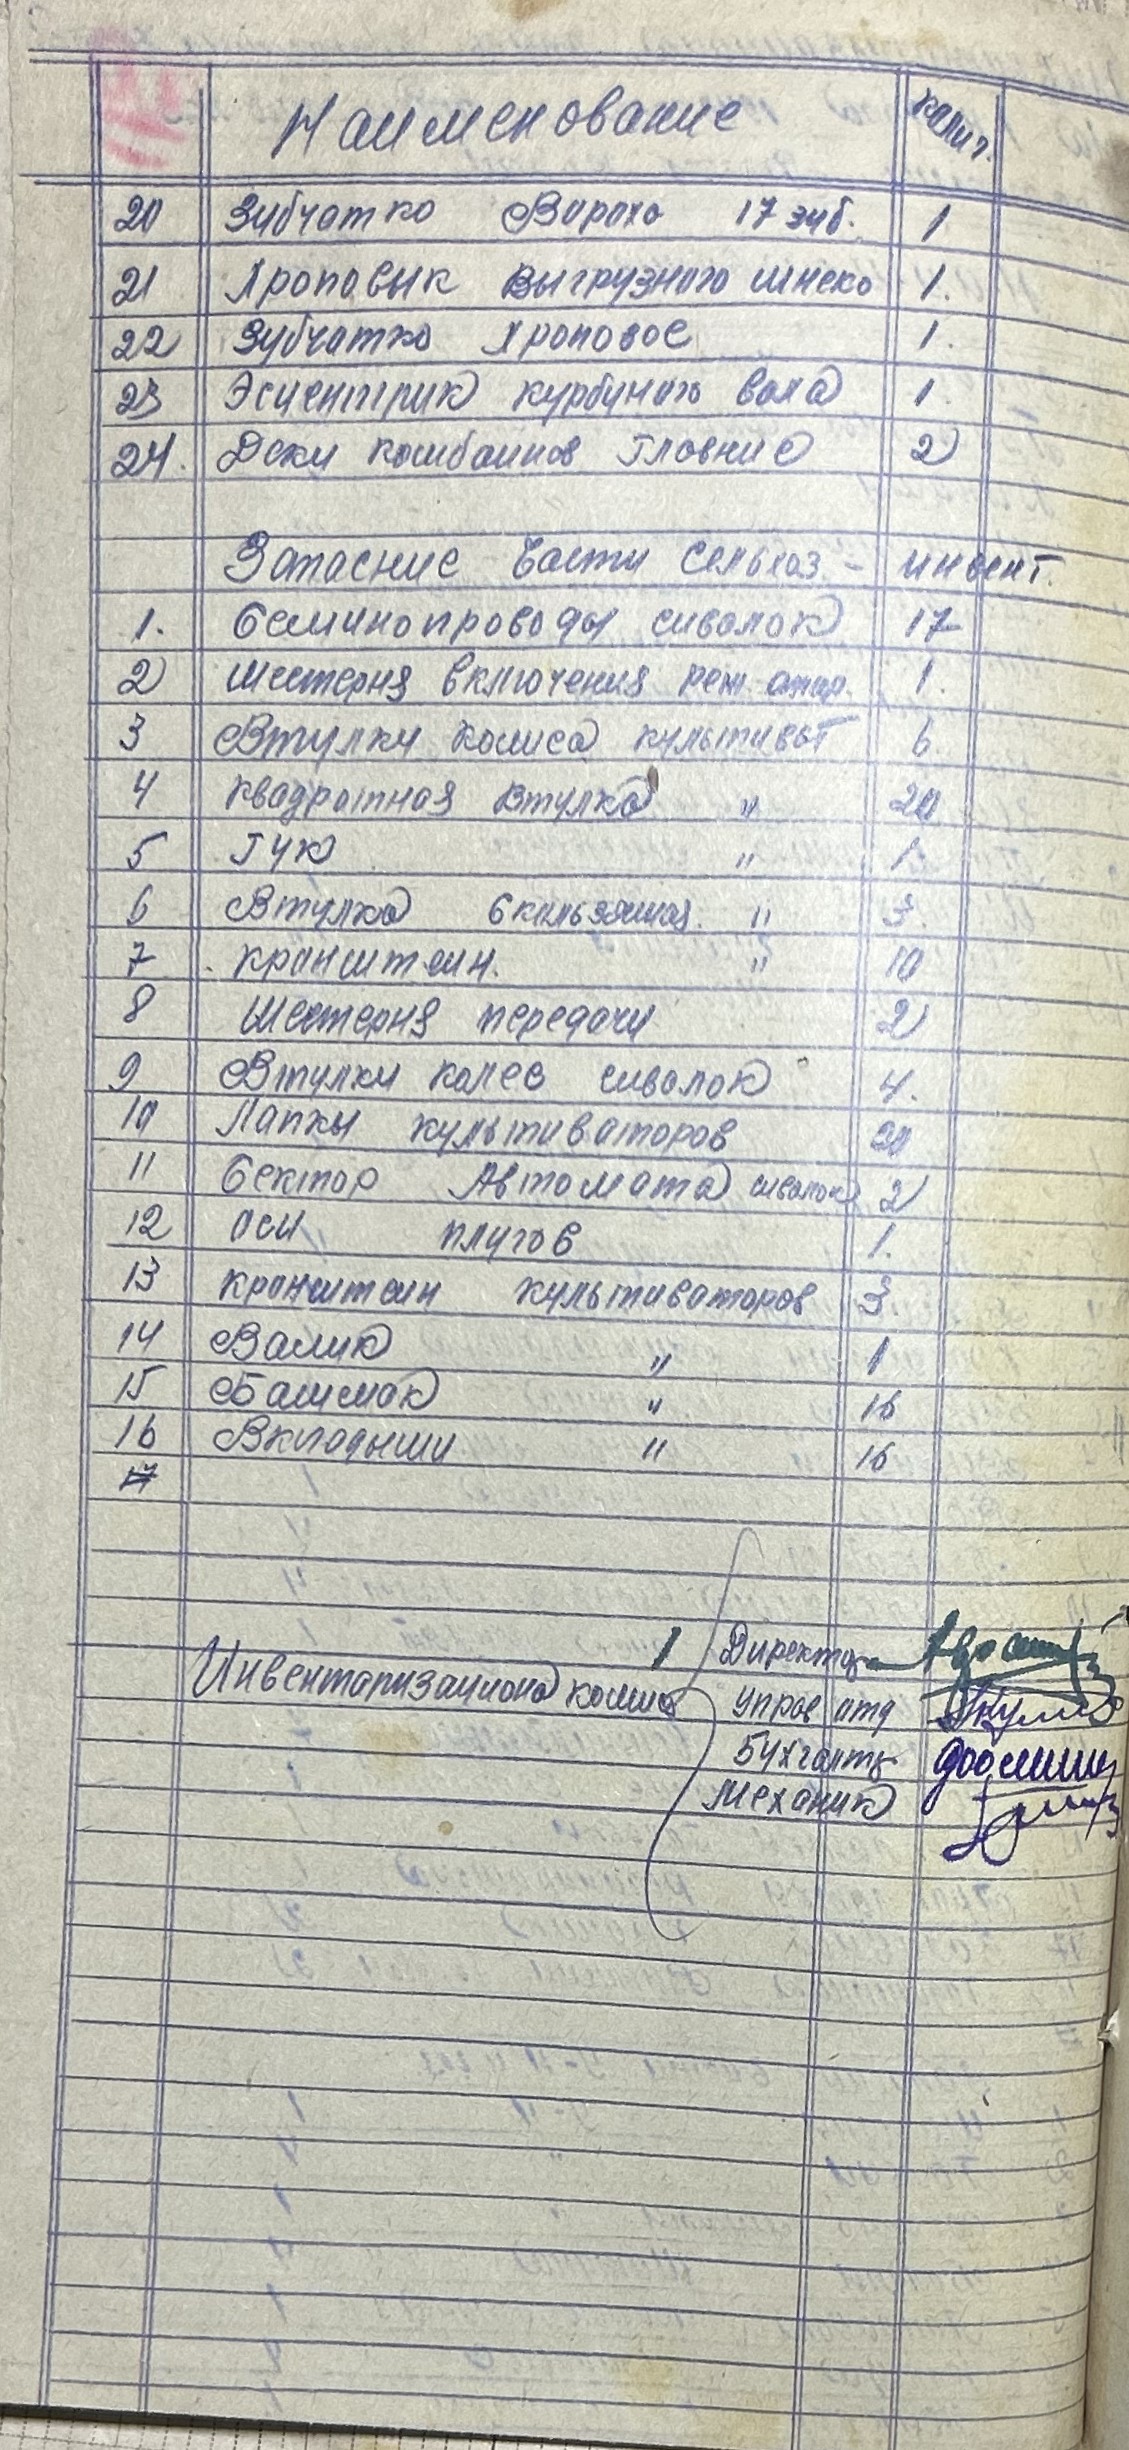 Наименование колич.
20 Зубчатка Вороха 17 зуб. 1
21 Храповык выгрузного шнека 1.
22 Зубчатка Храповое 1.
23 Эсцентрик курбиного вала 1
24. Деки комбайнов Главние 2
Запасние Части Сельхоз - инвент.
1. Семинопроводы сиволок 17
2 Шестерня включения реж апар. 1.
3 Втулки колиса культиват 6
4 квадратная втулка " 20
5 Гук " 1
6 Втулка Скользящая " 3.
7 кронштеин. " 10
8 Шестерня передачи 2
9 Втулки колес сиволок 4.
10 Лапкы культиваторов 20
11 Сектор Автомата сиволок 2
12 Оси плугов 1.
13 кронштеин культиваторов 3
14 Валик " 1
15 Башмак " 16
16 Вкладыши " 16
17
Директор
Инвентаризациона комис Управ отд
Бухгалтер
Механик